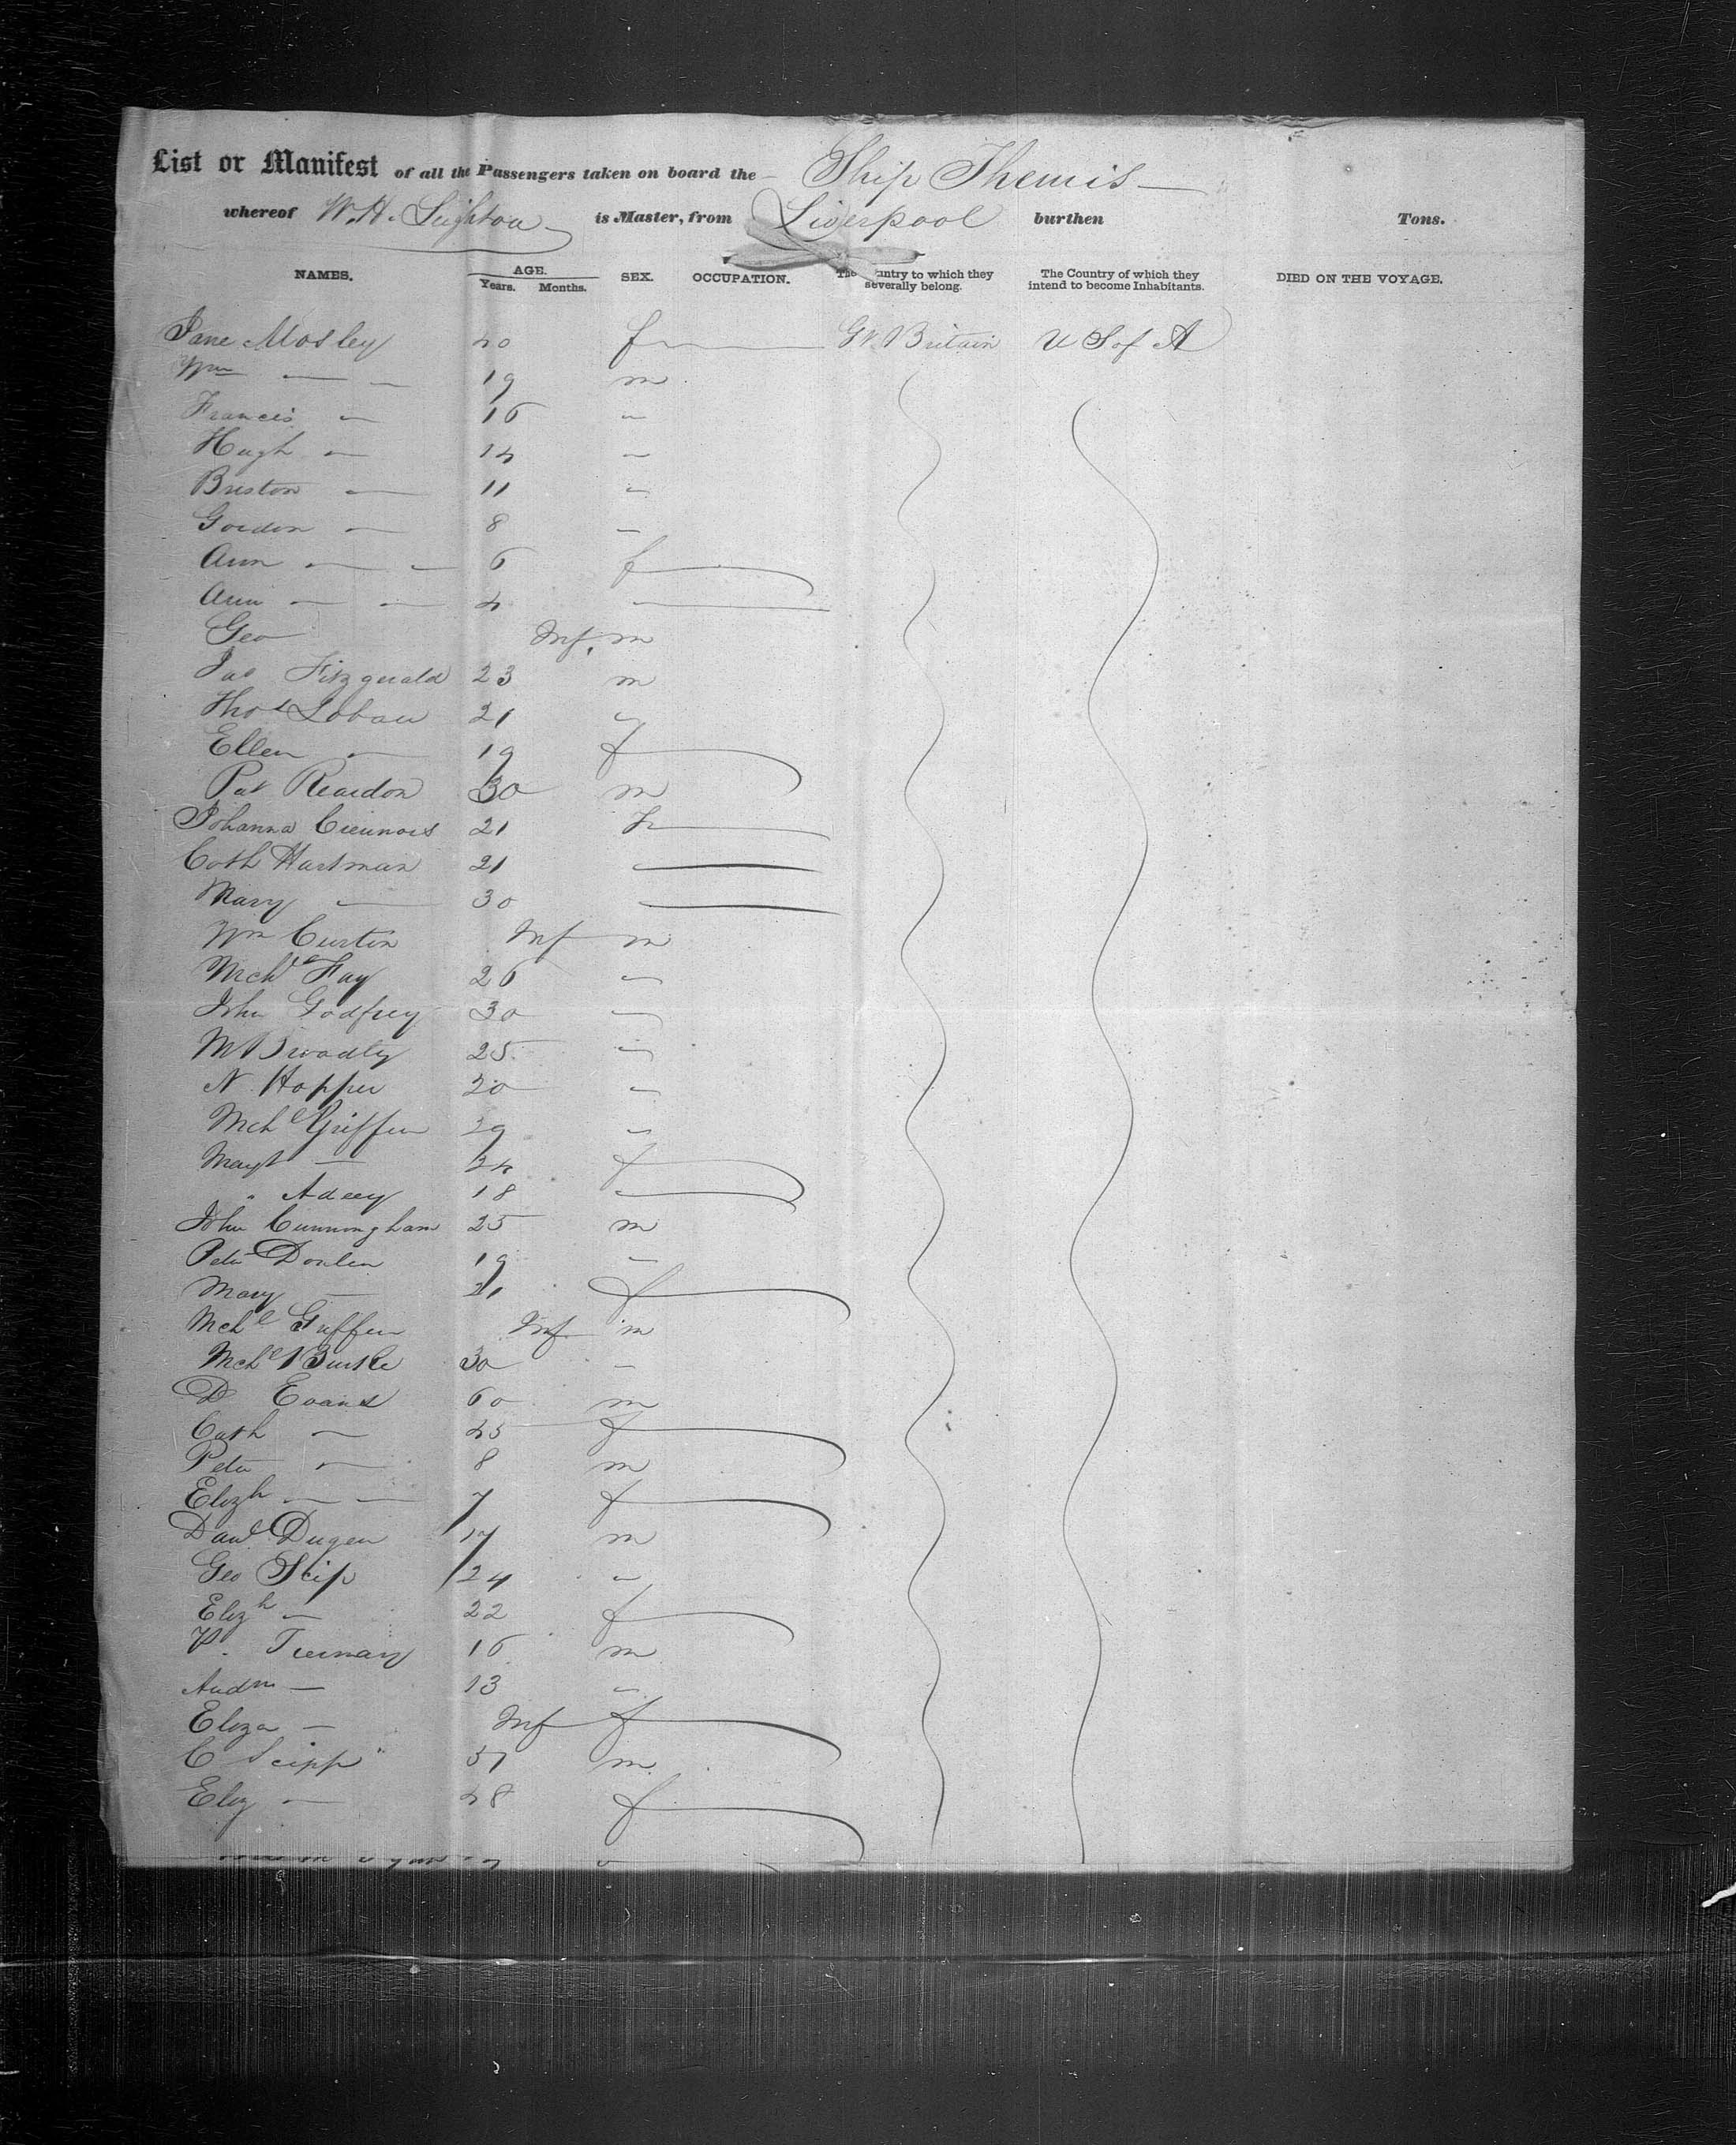 List or Manifest of all the Passengers taken on board the Ship Themis
whereof W. H. Leighton is Master, from Liverpool burthen Tons.
NAMES. AGE. SEX. OCCUPATION. The Country to which they severally belong. The Country of which they intend to become Inhabitants. DIED ON THE VOYAGE.
Years. Months.
Jane Mosley 40 f Gt Britain U S of A
Wm — — 19 m
Francis — 16 "
Hugh — 14 "
Briston — 11 "
Gordon — 8 "
Ann — — 6 f
Ann — — 4
Geo Inf. m
Jas Fitzgerald 23 m
Thos 21 "
Ellen — 19 f
Pat Reardon 30 m
Johanna 21 f
Cath Hartman 21
Mary — 30
Wm Curtin Inf m
Mchl Fay 26 "
John Godfrey 30 "
M Broadly 25 "
N. Hopper 20 "
Mchl Griffin 29 "
Magt — 34 f
" 18
John Cunningham 25 m
Peter Donlen 19 "
Mary — 21 f
Mchl Griffin Inf m
Mchl Burke 30 "
D Evans 60 m
Cath — 45 f
Peter — 8 m
Elizh — — 7 f
Danl Dugen 17 m
Geo Scip 24 "
Elizh — 22 f
P. Tiernan 16 m
Andw — 13 "
Eliza — Inf f
C Scipp 51 m
Eliz — 48 f